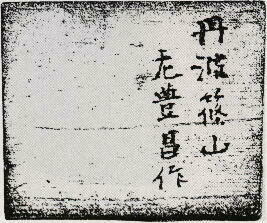 丹波篠山
尨豊昌作